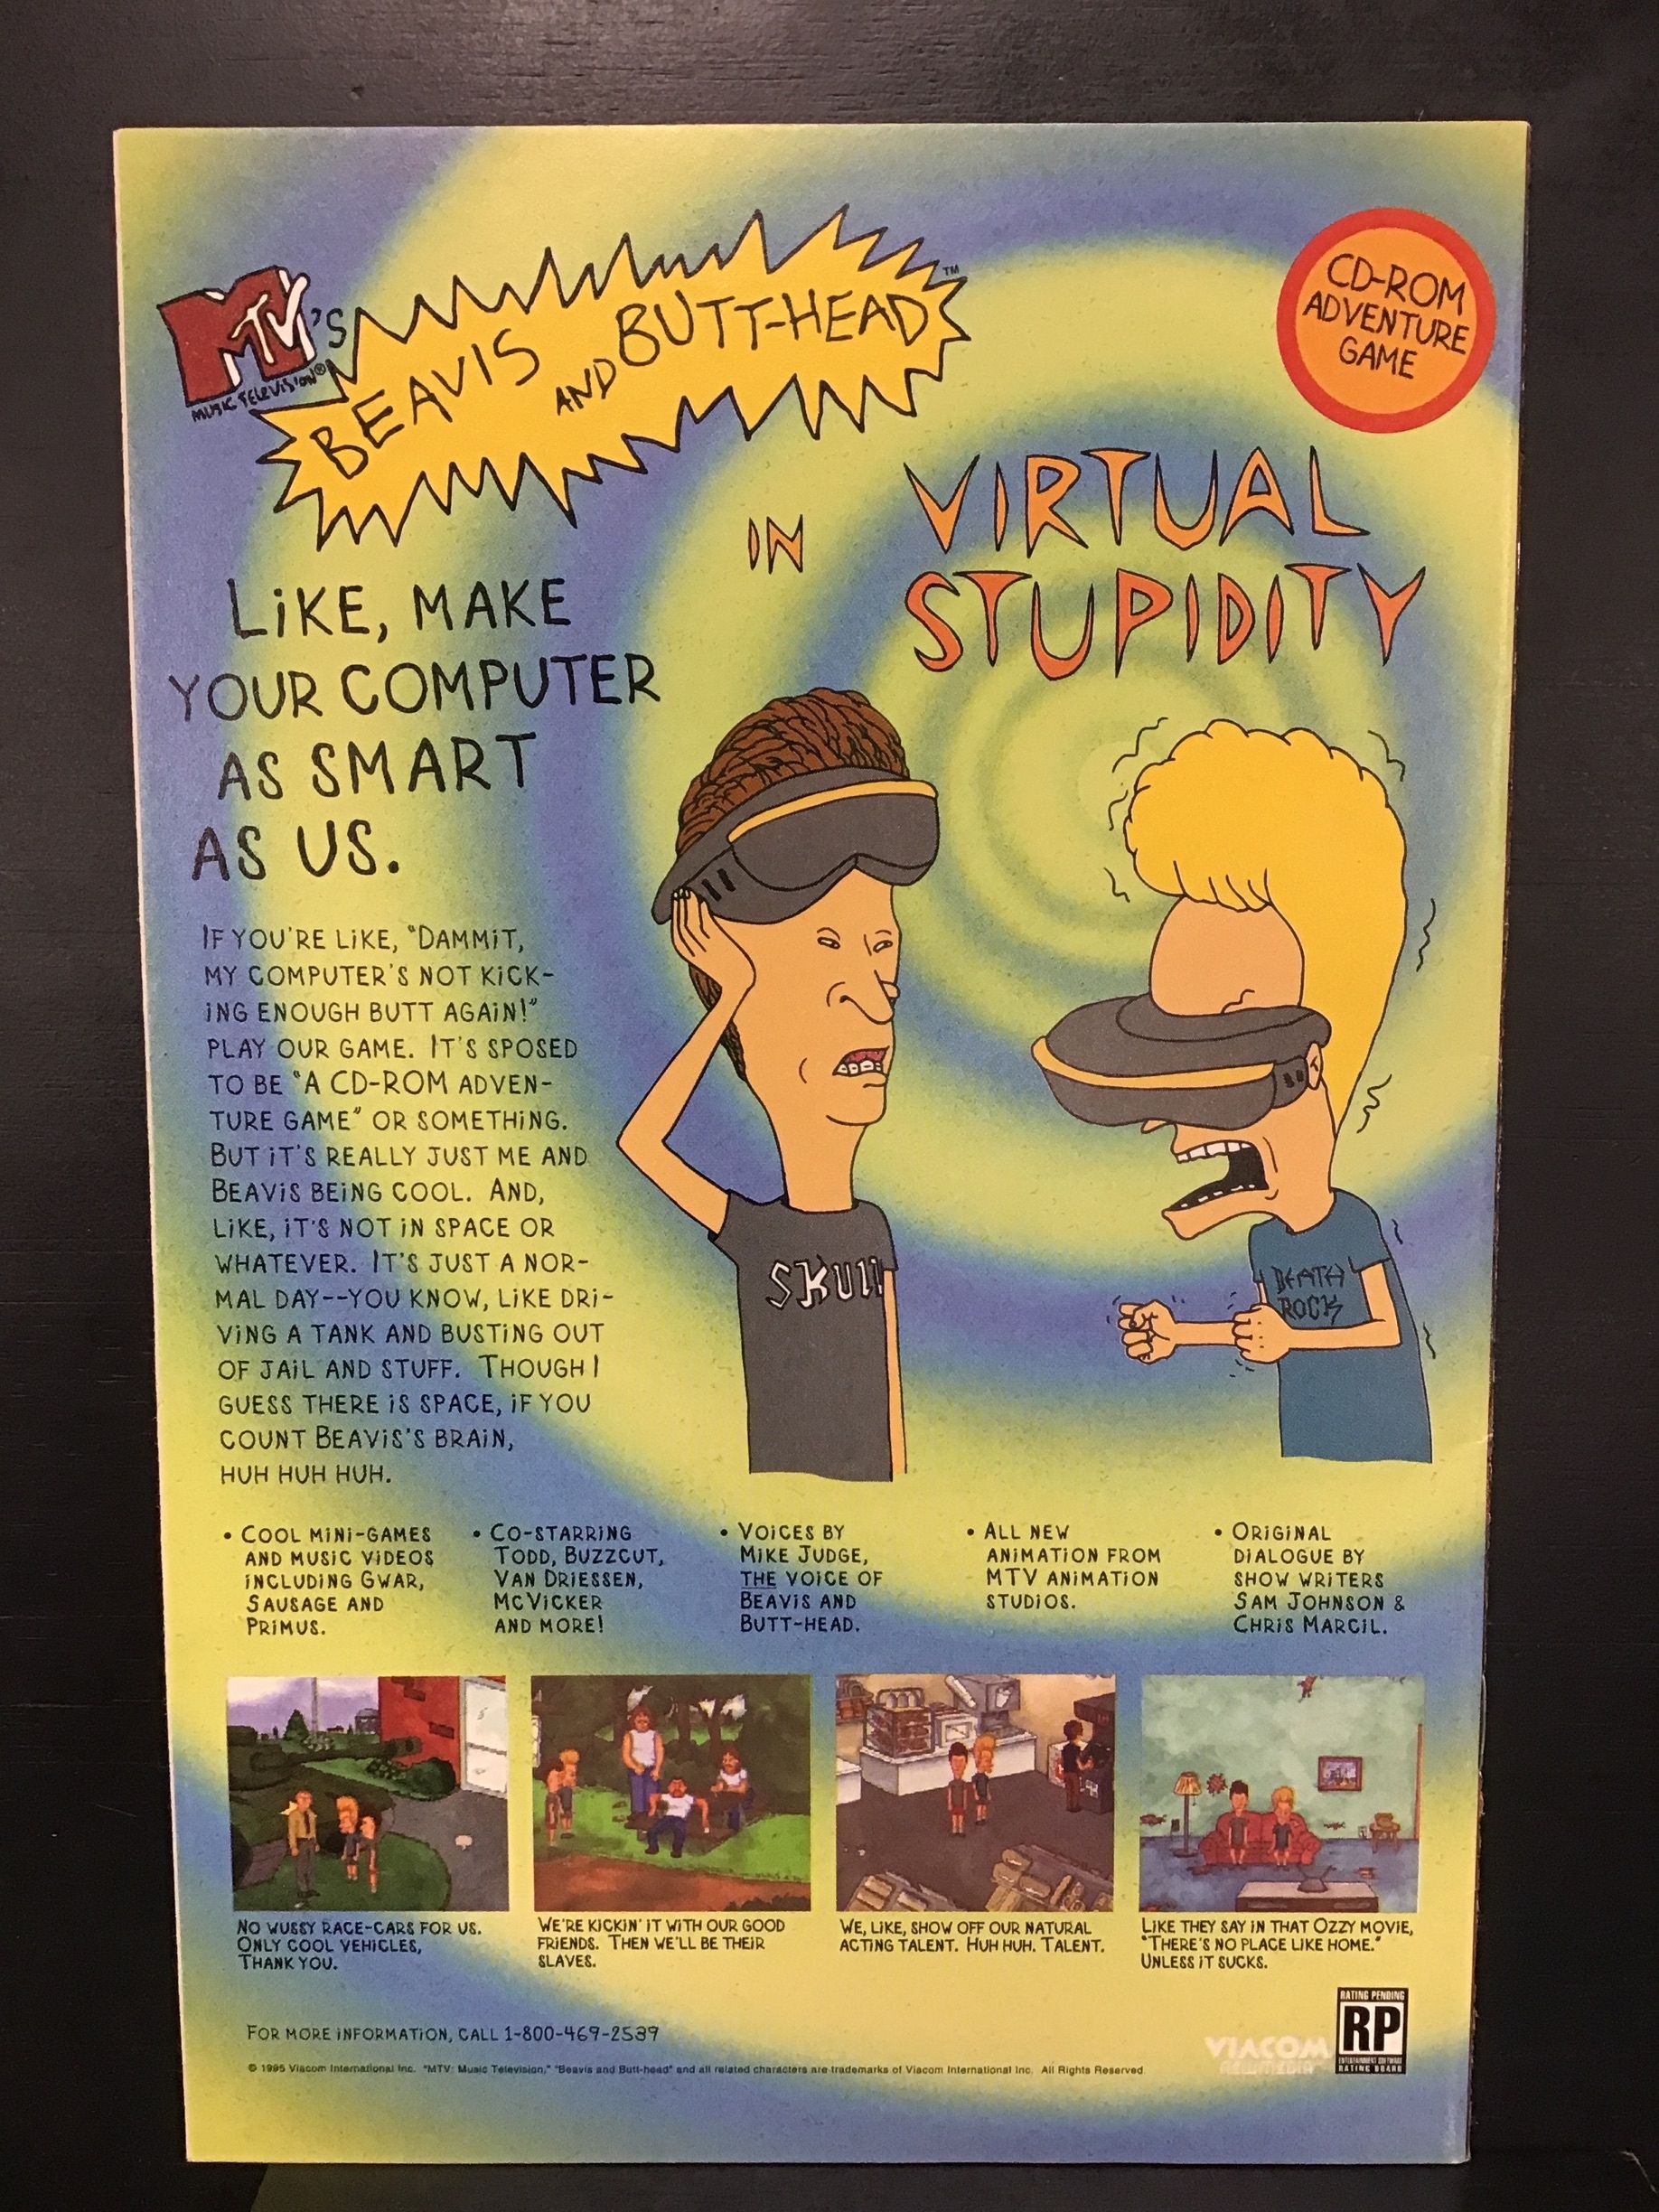 MTV'S
MUSIC TELEVISION®
BEAVIS AND BUTT-HEAD™
CD-ROM
ADVENTURE
GAME
IN VIRTUAL
STUPIDITY
LiKE, MAKE
YOUR COMPUTER
AS SMART
AS US.
IF YOU'RE LiKE, "DAMMiT,
MY COMPUTER'S NOT KiCK-
iNG ENOUGH BUTT AGAiN!"
PLAY OUR GAME. IT'S SPOSED
TO BE "A CD-ROM ADVEN-
TURE GAME" OR SOMETHiNG.
BUT iT'S REALLY JUST ME AND
BEAViS BEiNG COOL. AND,
LiKE, iT'S NOT iN SPACE OR
WHATEVER. IT'S JUST A NOR-
MAL DAY--YOU KNOW, LiKE DRi-
ViNG A TANK AND BUSTiNG OUT
OF JAiL AND STUFF. THOUGH I
GUESS THERE iS SPACE, iF YOU
COUNT BEAViS'S BRAiN,
HUH HUH HUH.
SKULL
DEATH
ROCK
• COOL MiNi-GAMES
AND MUSiC ViDEOS
iNCLUDiNG GWAR,
SAUSAGE AND
PRiMUS.
• CO-STARRiNG
TODD, BUZZCUT,
VAN DRiESSEN,
MCViCKER
AND MORE!
• VOiCES BY
MiKE JUDGE,
THE VOiCE OF
BEAViS AND
BUTT-HEAD.
• ALL NEW
ANiMATiON FROM
MTV ANiMATiON
STUDiOS.
• ORiGiNAL
DiALOGUE BY
SHOW WRiTERS
SAM JOHNSON &
CHRiS MARCiL.
NO WUSSY RACE-CARS FOR US.
ONLY COOL VEHiCLES,
THANK YOU.
WE'RE KiCKiN' iT WiTH OUR GOOD
FRiENDS. THEN WE'LL BE THEiR
SLAVES.
WE, LiKE, SHOW OFF OUR NATURAL
ACTiNG TALENT. HUH HUH. TALENT.
LiKE THEY SAY iN THAT OZZY MOViE,
"THERE'S NO PLACE LiKE HOME."
UNLESS iT SUCKS.
FOR MORE iNFORMATiON, CALL 1-800-469-2539
© 1995 Viacom International Inc. "MTV: Music Television," "Beavis and Butt-head" and all related characters are trademarks of Viacom International Inc. All Rights Reserved.
VIACOM
NEWMEDIA
RATING PENDING
RP
ENTERTAINMENT SOFTWARE
RATING BOARD